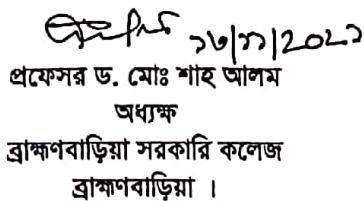 ১৬/১১/২০২১
প্রফেসর ড. মোঃ শাহ আলম
অধ্যক্ষ
ব্রাহ্মণবাড়িয়া সরকারি কলেজ
ব্রাহ্মণবাড়িয়া ।